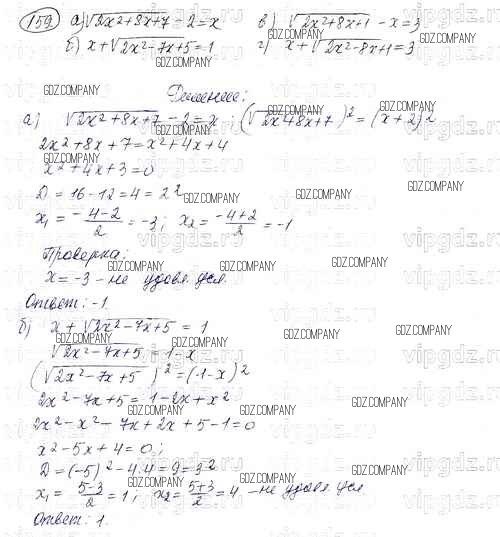 159 а) √2x²+8x+7 - 2 = x в) √2x²+8x+1 - x = 3
б) x + √2x²-7x+5 = 1 г) x + √2x²-8x+1 = 3
Решение:
а) √2x²+8x+7 - 2 = x ; (√2x²+8x+7)² = (x+2)²
2x²+8x+7 = x²+4x+4
x²+4x+3=0
D = 16-12 = 4 = 2²
x₁ = -4-2/2 = -3; x₂ = -4+2/2 = -1
Проверка:
x = -3 - не удовл. усл.
Ответ: -1.
б) x + √2x²-7x+5 = 1
√2x²-7x+5 = 1-x
(√2x²-7x+5)² = (1-x)²
2x²-7x+5 = 1-2x+x²
2x²-x²-7x+2x+5-1=0
x²-5x+4=0;
D = (-5)²-4·4 = 9 = 3²
x₁ = 5-3/2 = 1; x₂ = 5+3/2 = 4 - не удовл. усл.
Ответ: 1.